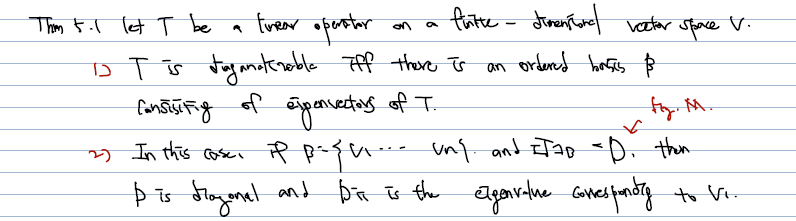 Thm 5.1 let T be a linear operator on a finite-dimensional vector space V.
1) T is diagonalizable iff there is an ordered basis β
consisting of eigenvectors of T.
2) In this case, if β={v1 ... vn}. and [T]β = D, then
D is diagonal and Dii is the eigenvalue corresponding to vi.